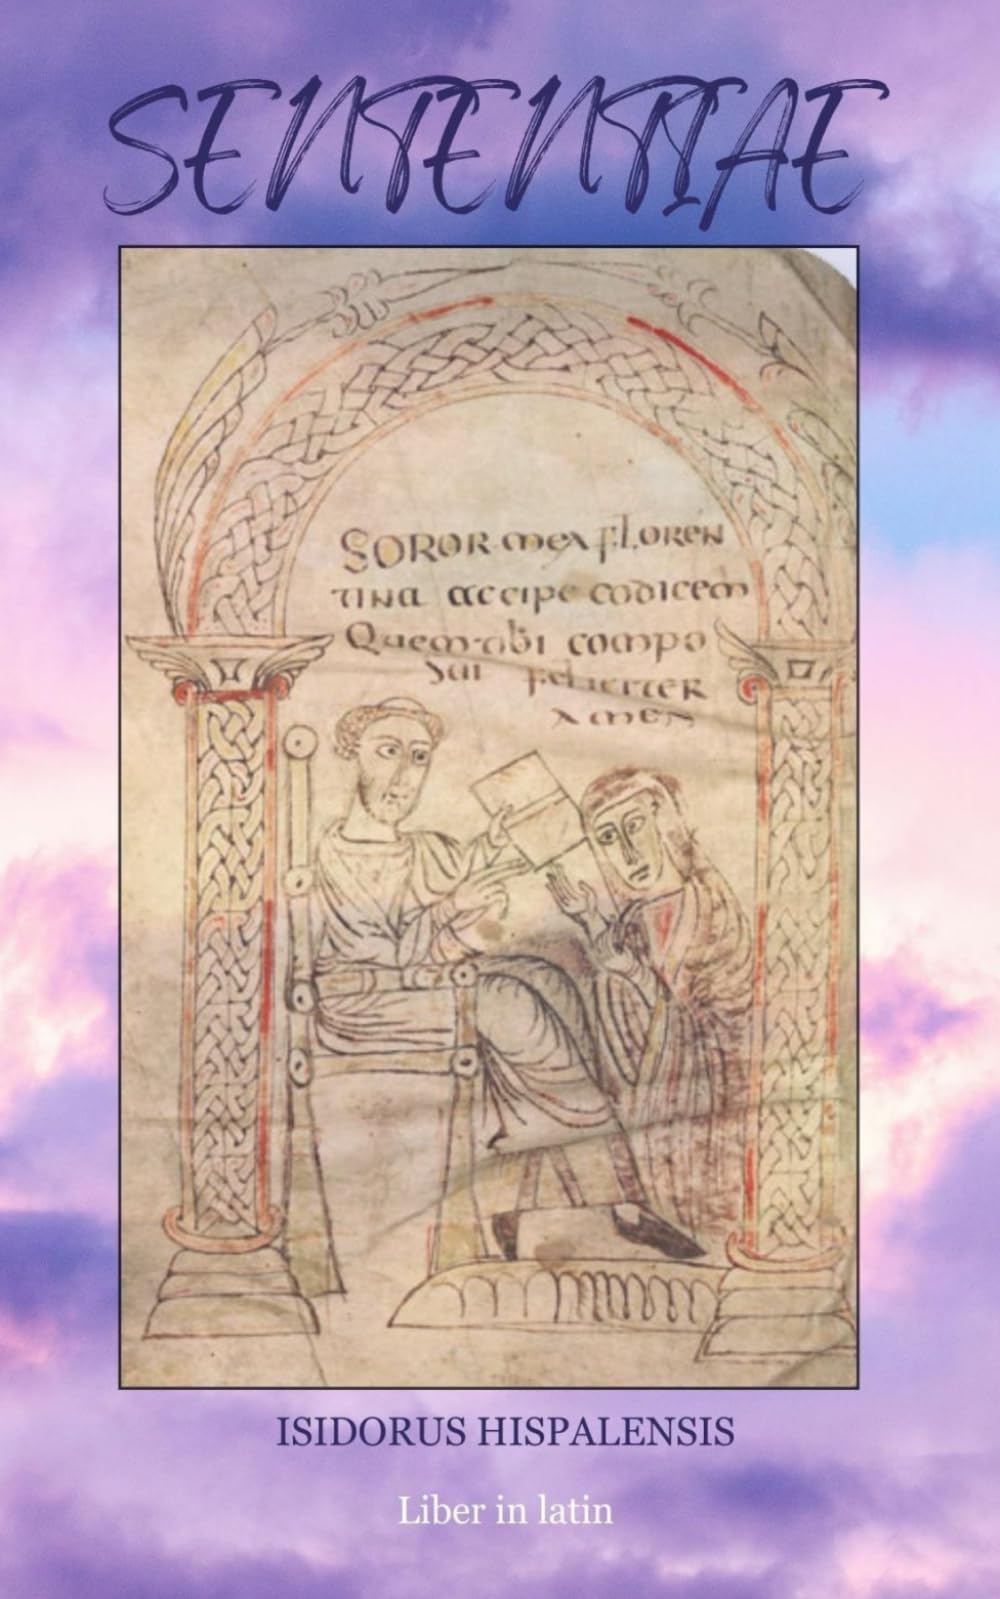 SENTENTIAE
SOROR mea FLOREN
TINA accipe codicem
Quem tibi compo
sui feliciter
AMEN
ISIDORUS HISPALENSIS
Liber in latin